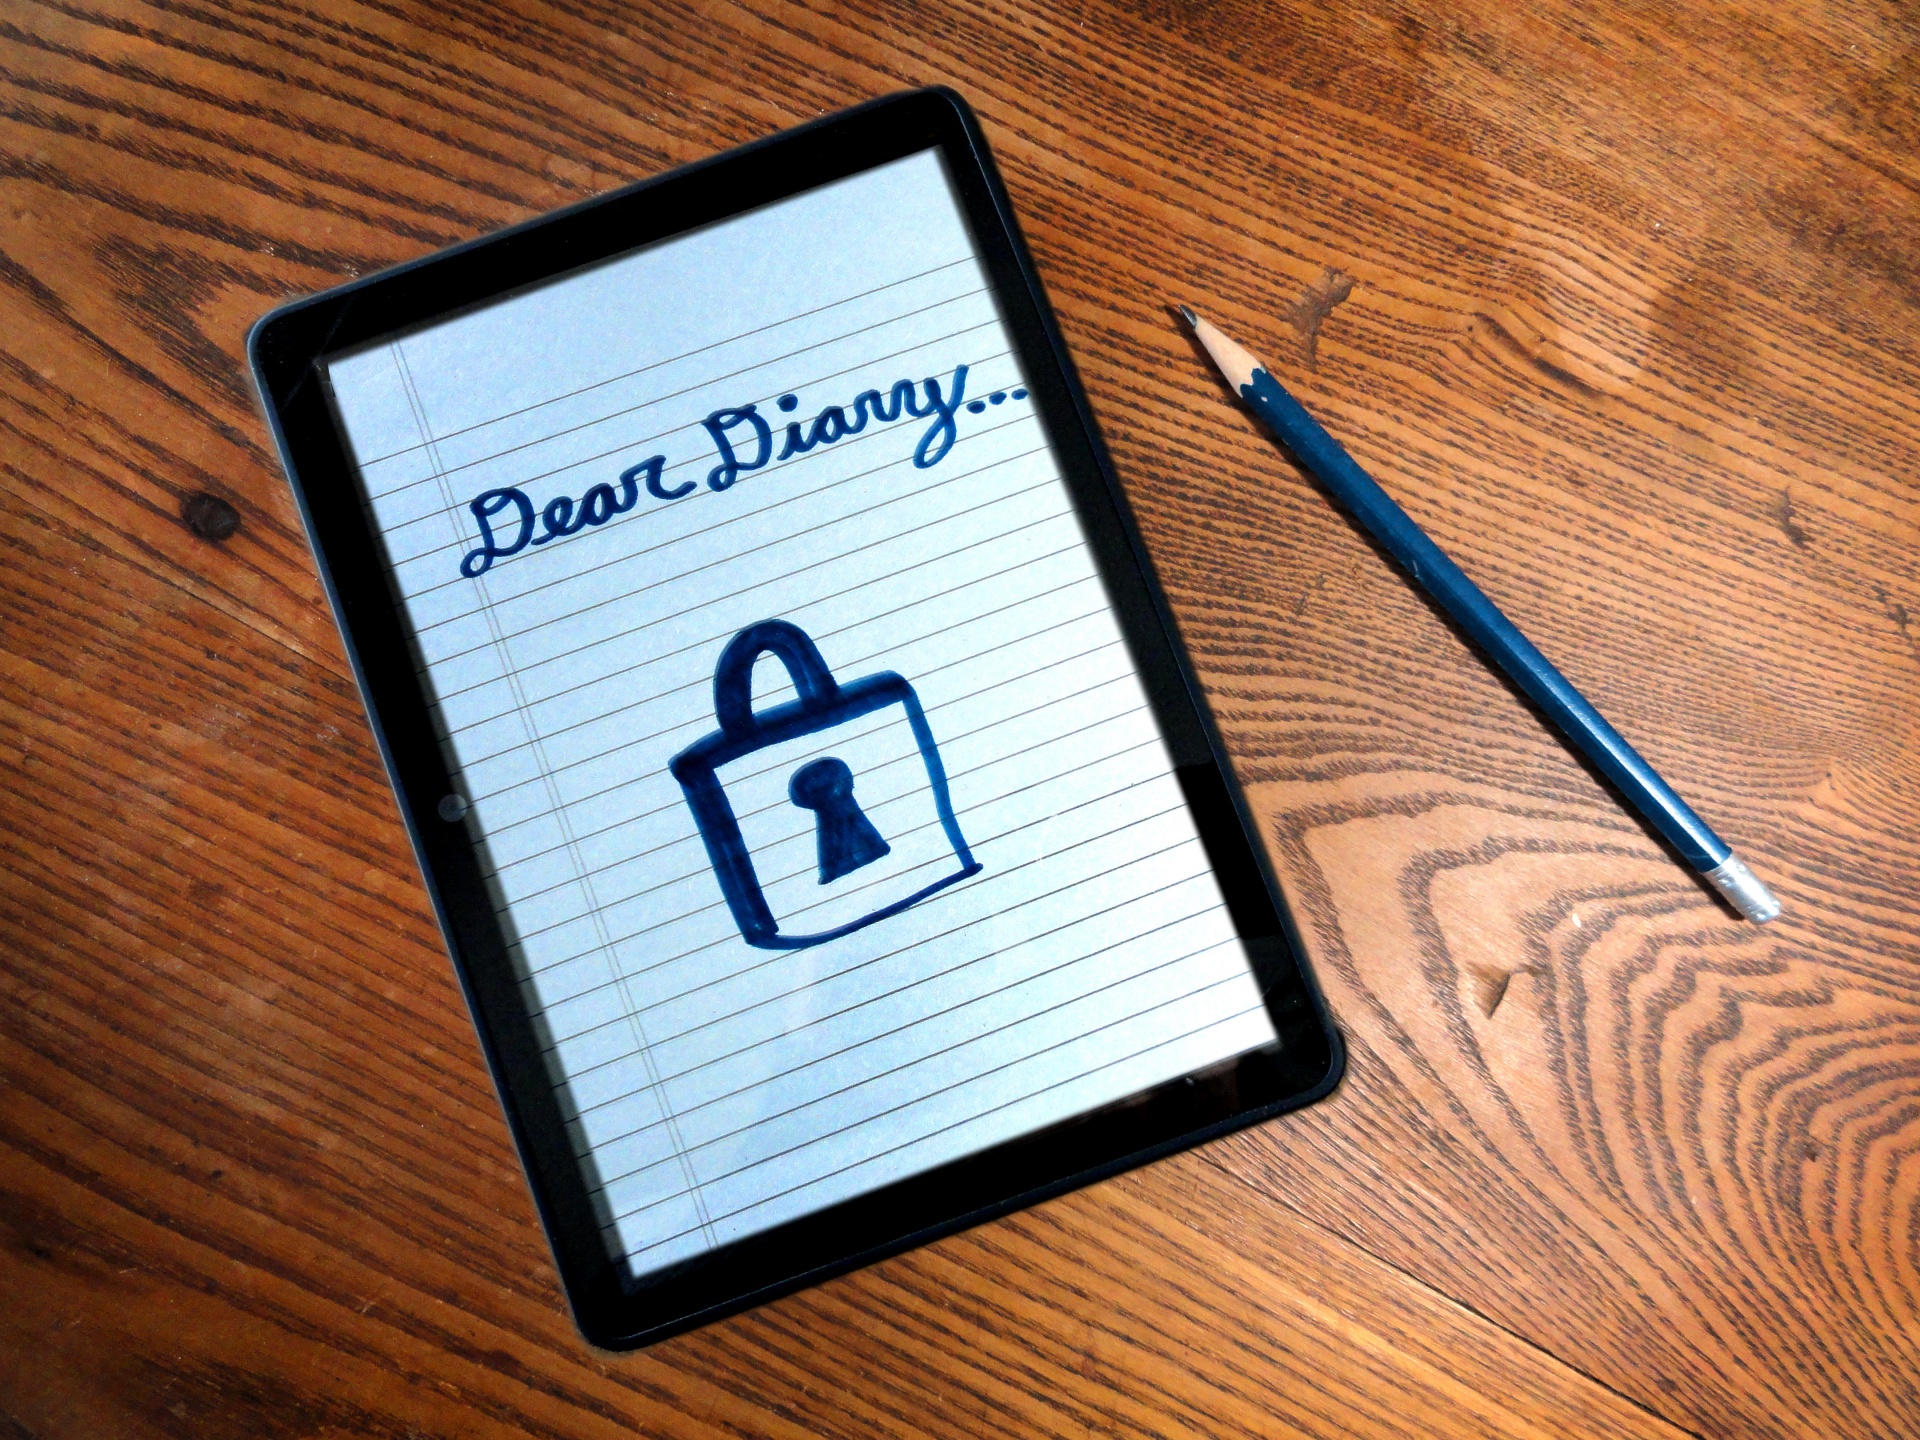 Dear Diary...